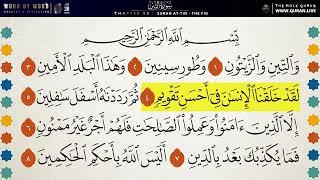 WORD BY WORD
CHAPTER 95 SURAH AT-TIN - THE FIG
THE HOLY QURAN
WWW.QURAN.LIVE
بِسْمِ اللَّهِ الرَّحْمَٰنِ الرَّحِيمِ
وَالتِّينِ وَالزَّيْتُونِ ١ وَطُورِ سِينِينَ ٢ وَهَٰذَا الْبَلَدِ الْأَمِينِ ٣
لَقَدْ خَلَقْنَا الْإِنسَٰنَ فِي أَحْسَنِ تَقْوِيمٍ ٤ ثُمَّ رَدَدْنَٰهُ أَسْفَلَ سَٰفِلِينَ ٥
إِلَّا الَّذِينَ ءَامَنُوا۟ وَعَمِلُوا۟ الصَّٰلِحَٰتِ فَلَهُمْ أَجْرٌ غَيْرُ مَمْنُونٍ ٦
فَمَا يُكَذِّبُكَ بَعْدُ بِالدِّينِ ٧ أَلَيْسَ اللَّهُ بِأَحْكَمِ الْحَٰكِمِينَ ٨